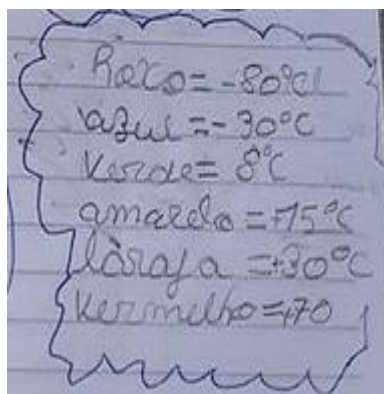 Roxo = -80°C
azul = -30°C
Verde = 8°C
amarelo = +15°C
laraja = +30°C
Vermelho = +70